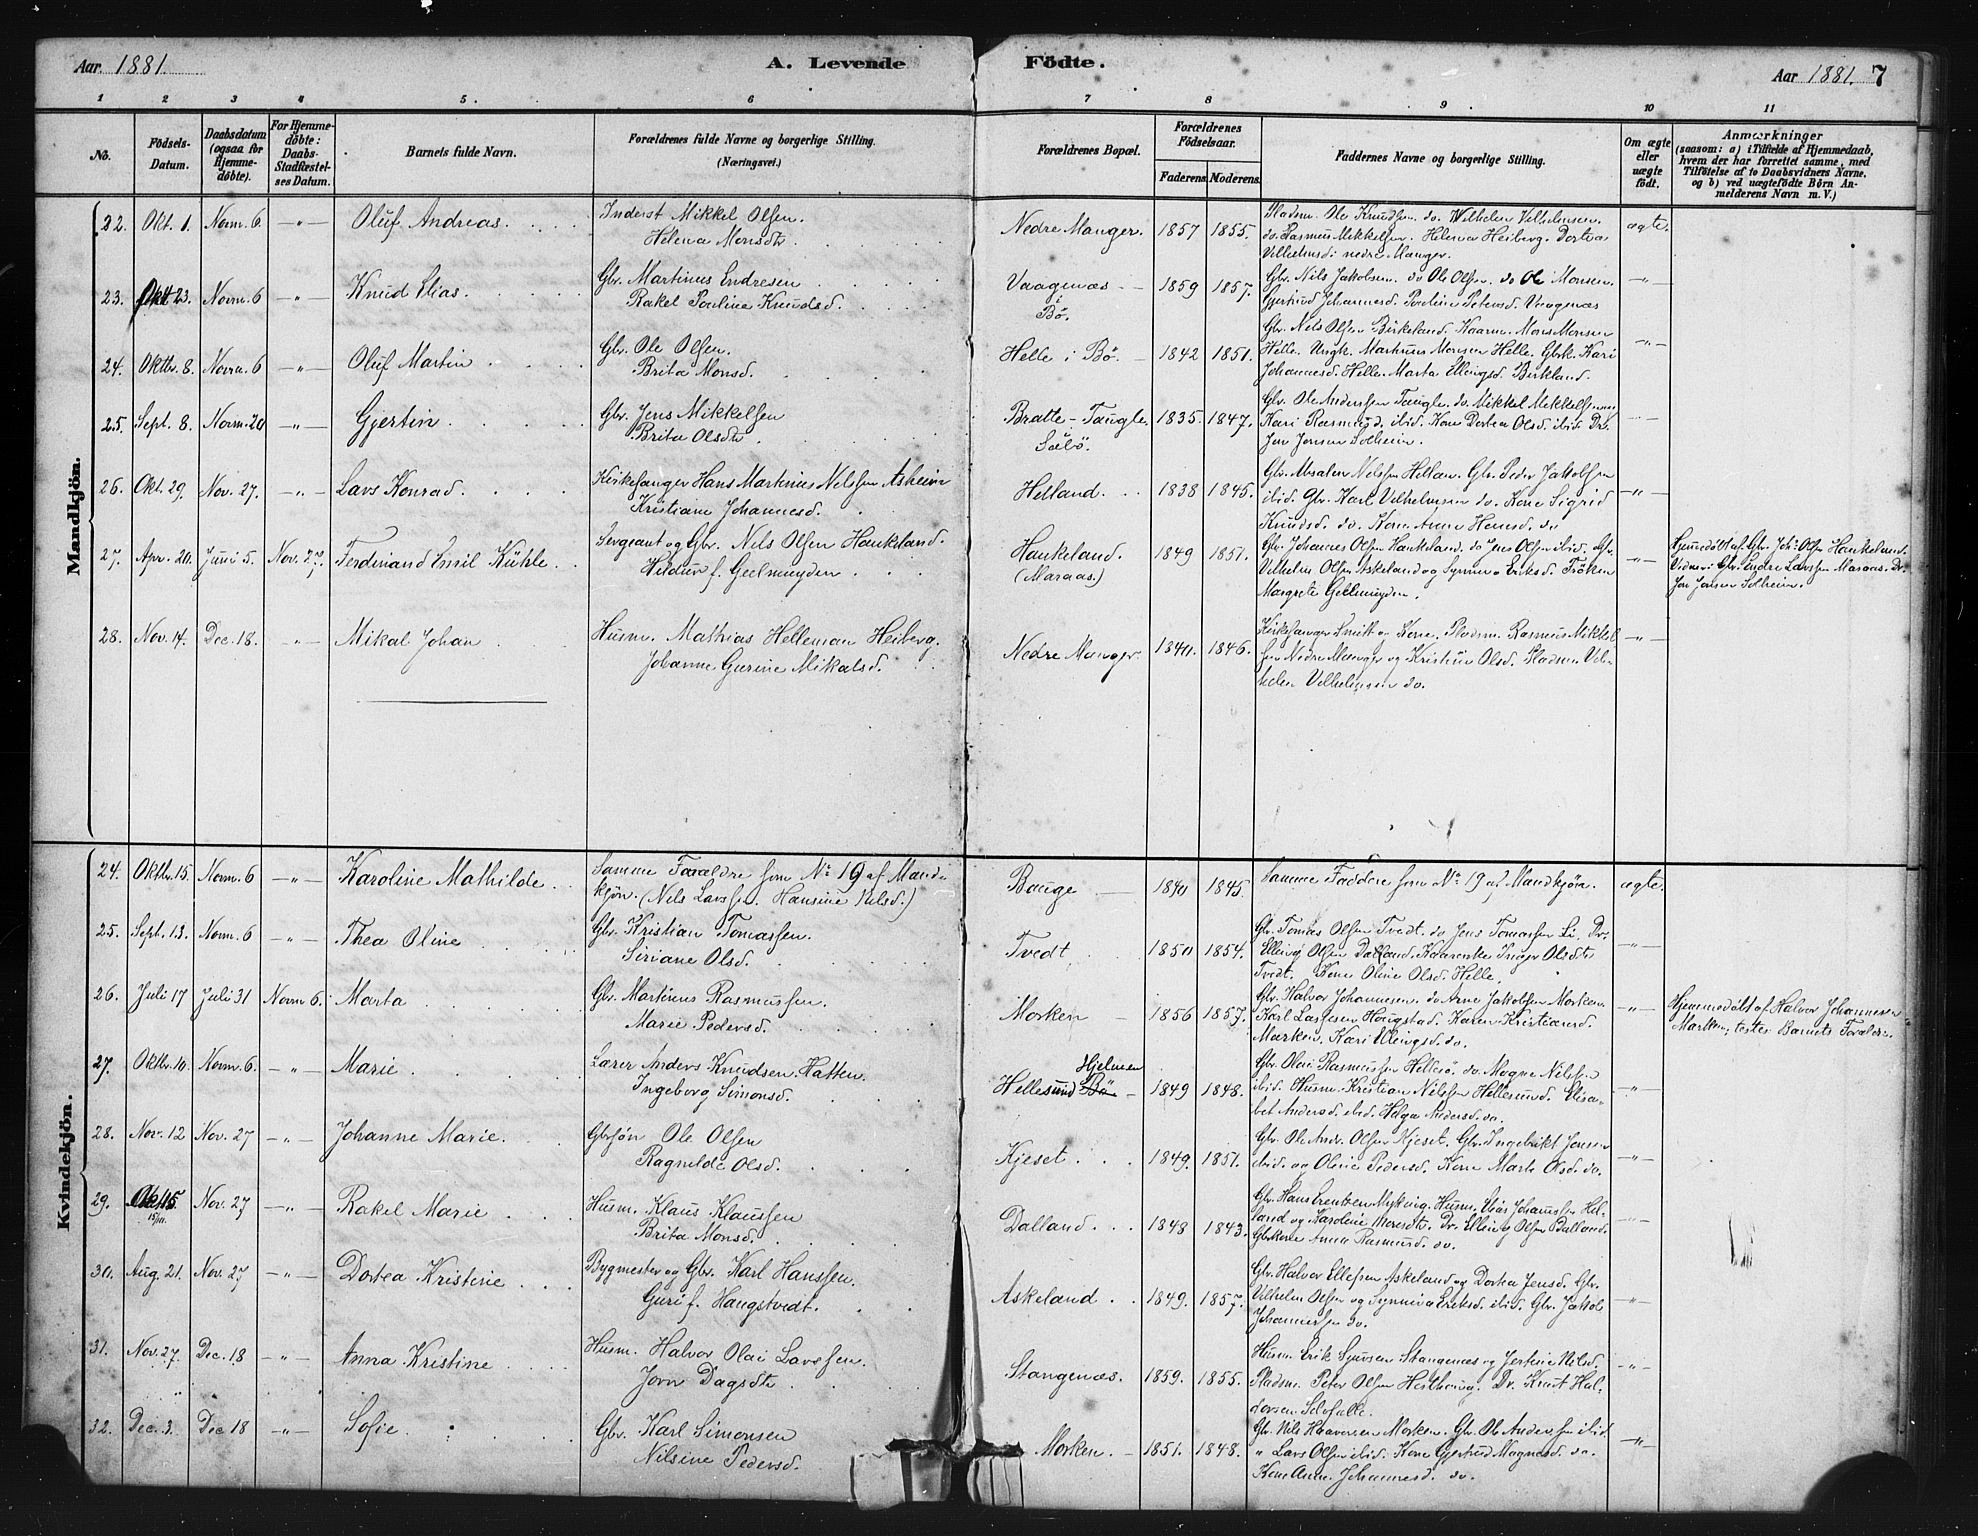 Aar 1881. A. Levende Födte. Aar 1881. 7
1 2 3 4 5. 6 7 8 9 10 11
No. Födsels-Datum. Daabsdatum (ogsaa for Hjemme-döbte). For Hjemme-döbte: Daabs-Stadfæstel-ses Datum. Barnets fulde Navn. Forældrenes fulde Navne og borgerlige Stilling. (Næringsvei.) Forældrenes Bopæl. Forældrenes Födselsaar. Faderens. Moderens. Faddernes Navne og borgerlige Stilling. Om ægte eller uægte födt. Anmærkninger (saasom: a) i Tilfælde af Hjemmedaab, hvem der har forrettet samme, med Tilföielse af to Daabsvidners Navne, og b) ved uægtefödte Börn An-melderens Navn m. V.)
Mandkjön.
22. Okt. 1. Novm. 6. -"- Oluf Andreas. Inderst Mikkel Olsen. Nedre Manger. 1857 1855. Pladsm. Ole Knudsen. do. Wilhelm Vilhelmsen. ægte.
Helena Monsdtr. do. Rasmus Mikkelsen. Helena Heiberg. Dortea
Vilhelmsd. nedre Manger.
23. Okt 23. Novm. 6 -"- Knud Elias. Gbr. Martinus Endresen Vaagenæs i Bö. 1859 1857. Gbr. Nils Jakobsen. do Ole Olsen. do Ole Monsen. -"-
Rakel Pauline Knudsd. Gjertrud Johannesd. Paulina Petersd. Vaagenæs
24. Oktbr. 8. Novm. 6 -"- Oluf Martin Gbr. Ole Olsen. Helle i Bö. 1842 1851. Gbr. Nels Olsen Birkeland. Kaarm. Mons Monsen -"-
Brita Monsd. Helle. Ungk. Markus Monsen Helle. Gbrk. Kari
Johannesd. Helle. Marta Ellingsd. Birkland.
25. Sept. 8. Novm. 20 -"- Gjertin. Gbr. Jens Mikkelsen Bratte-Taugle. Säbö. 1835. 1847. Gbr. Ole Anderssen Taugle. do. Mikkel Mikkelsen
Brita Olsdtr. Kari Rasmusd. ibid. Kone Dortea Olsd. ibid. Dr.
Jon Jensen Solheim.
26. Okt. 29. Nov. 27. -"- Lars Konrad. Kirkesanger Hans Martinus Nilssen Asheim Helland. 1838 1845. Gbr. Absalon Nilssen Hellan. Gbr. Peder Jakobsen -"-
Kristiane Johannesd. ibid. Gbr. Karl Vilhelmsen do. Kone Sigrid
Knudsd. do. Kone Anne Hansd. do
27. Apr. 20. Juni 5. Nov. 27. Ferdinand Emil Kühle. Sergeant og Gbr. Nils Olsen Haukeland. Haukeland. (Maraas) 1849 1851. Gbr. Johannes Olsen Haukeland. do Jens Olsen ibid. Gbr. -"- Hjemedöbt af Gbr. Johs Olsen Haukeland.
Hildur f. Geelmuyden. Vilhelm Olsen Askeland og Synneva Eriksd. Fröken Vidner: Gbr. Endre Larssen Maraas. Dr.
Margrete Geelmuyden. Jon Jensen Solheim.
28. Nov. 14. Dec. 18. -"- Mikal Johan Husm. Mathias Helleman Heiberg. Nedre Manger. 1840. 1846. Kirkesanger Smitt og Kone. Pladsm. Rasmus Mikkel- -"-
Johanne Gurine Mikalsd. sen Nedre Manger og Kristine Olsd. Pladsm. Vil-
helm Vilhelmsen do.
Kvindekjön.
24. Oktbr. 15. Novm. 6 -"- Karoline Mathilde. Samme Forældre som No 19 af Mand- Bauge 1840 1845. Samme Faddere som No 19 af Mandkjön. ægte.
kjön. (Nils Larssen. Hansine Nilsd.)
25. Sept. 13. Novm. 6 -"- Thea Oline Gbr. Kristian Tomassen. Tvedt 1850 1854. Gbr. Tomas Olsen Tvedt. do Jens Tomassen Li. Dr. -"-
Siriane Olsd. Elling Olsen Dalland. Kaarenke Inger Olsdtr
Tvedt. Kone Oline Olsd. Helle.
26. Juli 17 Juli 31 Novm 6. Marta Gbr. Martinus Rasmussen. Morken 1856 1857. Gbr. Halvor Johannesen. do Arne Jakobsen Morken. -"- Hjemmedöbt af Halvor Johannesen
Marie Pedersd. Karl Lassesen Haugstad. Karen Kristiansd. Morken, testes Barnets Forældre.
Morken. Kari Ellingsd. do.
27. Oktbr. 10. Novm. 6. -"- Marie Lærer Anders Knudsen Hatten. Hellesund Bö Hjelmen 1849 1848. Gbr. Olai Rasmussen Hellesö. do. Mogne Nilsen -"-
Ingeborg Simonsd. ibid. Husm. Kristian Nilssen Hellesund. Elisa-
bet Andersd. ibid. Helga Andersd. do.
28. Nov. 12 Nov. 27 -"- Johanne Marie. Gbrsön Ole Olsen Kjeset. 1849. 1851. Gbr. Ole Andr. Olsen Kjeset. Gbr. Ingebrikt Jensen -"-
Ragnilde Olsd. ibid. og Oline Pedersd. Kone Marta Olsd. do.
29. 15/10. Nov. 27 -"- Rakel Marie Husm. Klaus Klaussen Dalland. 1848 1843. Gbr. Hans Husm. Elias Johannessen Hel- -"-
Brita Monsd. land og Karoline Monsdtr. Dr. Elling Olsen Dalland.
Gbrkone Anna Rasmusd. do.
30. Aug. 21. Nov. 27 -"- Dortea Kristine Bygmester og Gbr. Karl Hanssen. Askeland. 1849. 1857. Gbr. Halvor Ellefsen Askeland og Dortea Jensd. Gbr. -"-
Guri f. Haugstvedt. Vilhelm Olsen og Synneva Eriksd. ibid. Gbr. Jakob
Johannessen do.
31. Nov. 27. Dec. 18 -"- Anna Kristine Husm. Halvor Olai Larssen. Stangenæs. 1859. 1855. Husm. Erik Sjursen Stangenæs og Jertine Nilsd. -"-
Jorn Dagsdtr. Pladsm. Peter Olsen Dr. Knut Hal-
dorsen
32. Dec. 3. Dec 18 -"- Sofie. Gbr. Karl Simonsen Morken. 1851. 1848. Gbr. Nils Haaversen Morken. Gbr. Ole Anderssen ibid. -"-
Nilsine Pedersd. " Lars Olsen ibid. Kone Gjertrud Magnesd. do.
Kone Anne Johannesd. do.